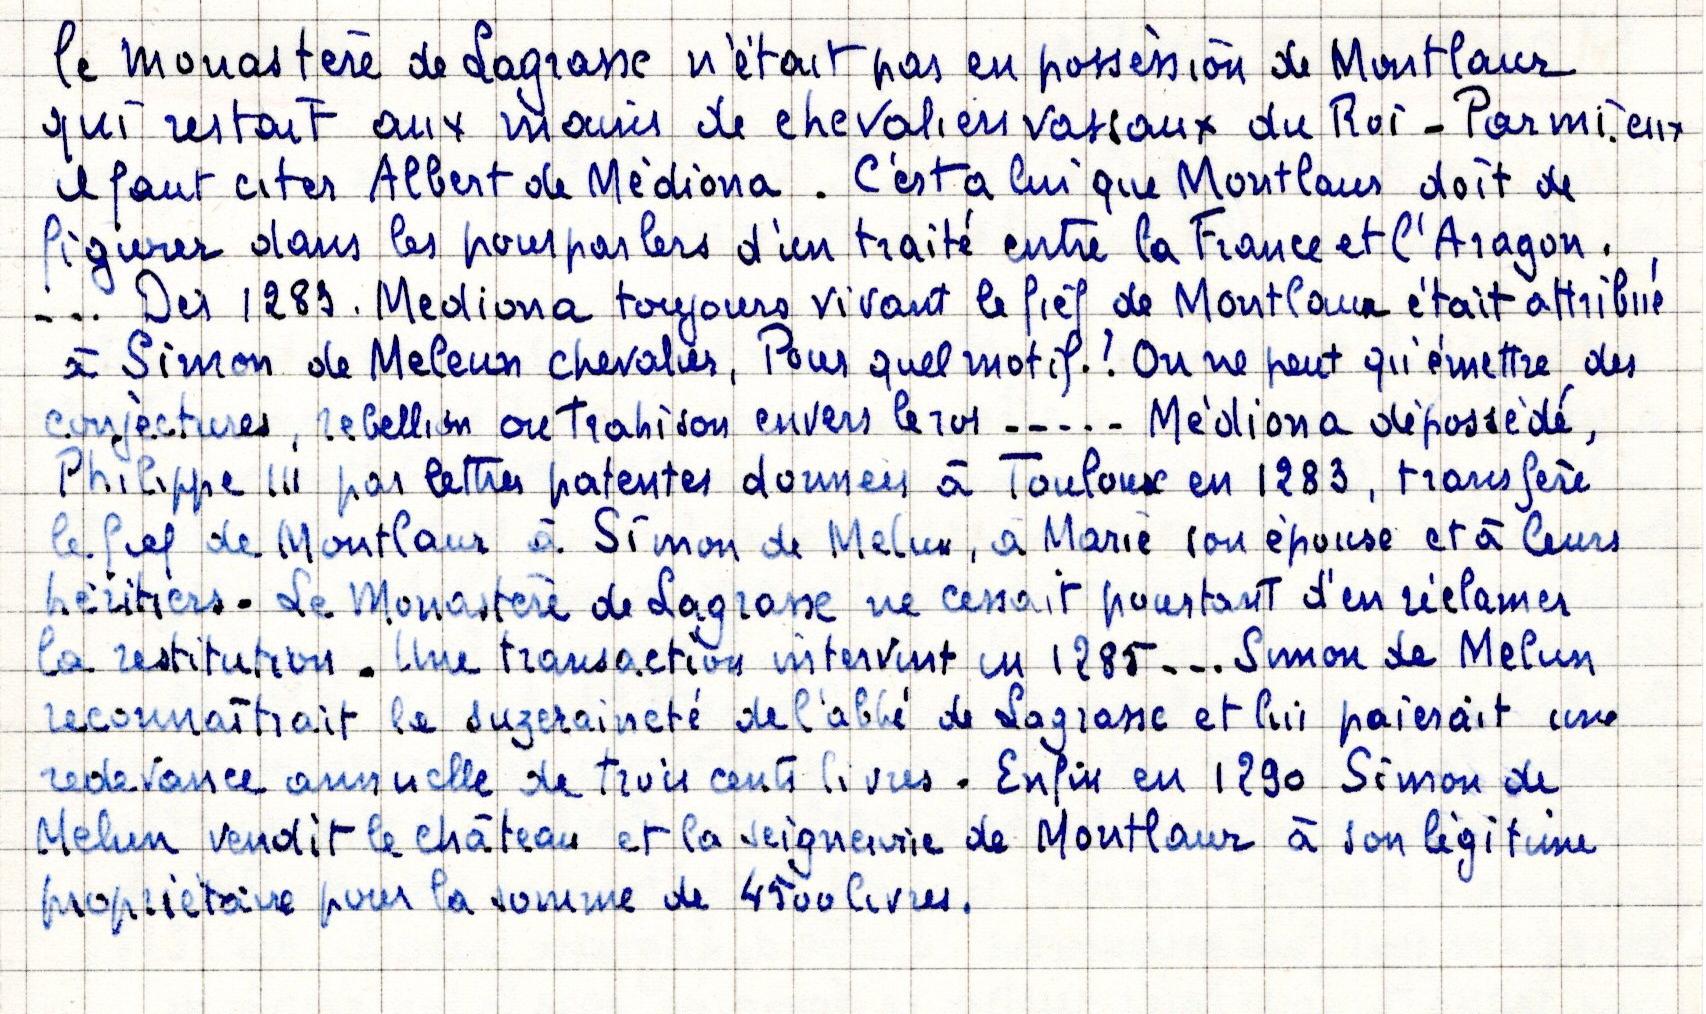 le monastère de Lagrasse n'était pas en possession de Montlaur
qui restait aux mains de chevaliers vassaux du Roi - Parmi eux
il faut citer Albert de Médiona. C'est a lui que Montlaur doit de
figurer dans les pourparlers d'un traité entre la France et l'Aragon.
--.. Dès 1283. Mediona toujours vivant le fief de Montlaur était attribué
à Simon de Meleun chevalier, Pour quel motif.? On ne peut qu'émettre des
conjectures, rebellion ou trahison envers le roi ----- Médiona dépossédé,
Philippe III par lettres patentes données à Toulouse en 1283, transfère
le fief de Montlaur à Simon de Melun, à Marie son épouse et à leurs
héritiers. Le Monastère de Lagrasse ne cessait pourtant d'en réclamer
la restitution. Une transaction intervint en 1285--.. Simon de Melun
reconnaîtrait la suzeraineté de l'abbé de Lagrasse et lui paierait une
redevance annuelle de trois cents livres. Enfin en 1290 Simon de
Melun vendit le château et la seigneurie de Montlaur à son légitime
propriétaire pour la somme de 4500 livres.